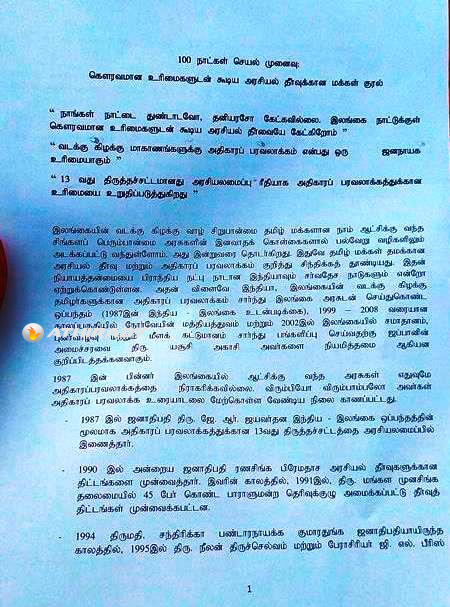 100 நாட்கள் செயல் முனைவு:
கௌரவமான உரிமைகளுடன் கூடிய அரசியல் தீர்வுக்கான மக்கள் குரல்
“ நாங்கள் நாட்டை துண்டாடவோ, தனியரசோ கேட்கவில்லை. இலங்கை நாட்டுக்குள்
கௌரவமான உரிமைகளுடன் கூடிய அரசியல் தீர்வையே கேட்கிறோம் ”
“ வடக்கு கிழக்கு மாகாணங்களுக்கு அதிகாரப் பரவலாக்கம் என்பது ஒரு ஜனநாயக
உரிமையாகும் ”
“ 13 வது திருத்தச்சட்டமானது அரசியலமைப்பு ரீதியாக அதிகாரப் பரவலாக்கத்துக்கான
உரிமையை உறுதிப்படுத்துகிறது ”
இலங்கையின் வடக்கு கிழக்கு வாழ் சிறுபான்மை தமிழ் மக்களான நாம் ஆட்சிக்கு வந்த
சிங்களப் பெரும்பான்மை அரசுகளின் இனவாதக் கொள்கைகளால் பல்வேறு வழிகளிலும்
அடக்கப்பட்டு வந்துள்ளோம். அது இன்றுவரை தொடர்கிறது. இதுவே தமிழ் மக்கள் தமக்கான
அரசியல் தீர்வு மற்றும் அதிகாரப் பரவலாக்கம் குறித்து சிந்திக்கத் தூண்டியது. இதன்
நியாயத்தன்மையை பிராந்திய நட்பு நாடான இந்தியாவும் சர்வதேச நாடுகளும் என்றோ
ஏற்றுக்கொண்டுள்ளன. அதன் விளைவே இந்தியா, இலங்கையின் வடக்கு கிழக்கு
தமிழர்களுக்கான அதிகாரப் பரவலாக்கம் சார்ந்து இலங்கை அரசுடன் செய்துகொண்ட
ஒப்பந்தம் (1987இன் இந்திய - இலங்கை உடன்படிக்கை), 1999 – 2008 வரையான
காலப்பகுதியில் நோர்வேயின் மத்தியத்துவம் மற்றும் 2002இல் இலங்கையில் சமாதானம்,
புனர்வாழ்வு மற்றும் மீளக் கட்டுமானம் சார்ந்து பங்களிப்பு செய்வதற்கு ஜப்பானின்
அமைச்சரவை திரு. யசூசி அகாசி அவர்களை நியமித்தமை ஆகியன
குறிப்பிடத்தக்கனவாகும்.
1987 இன் பின்னர் இலங்கையில் ஆட்சிக்கு வந்த அரசுகள் எதுவுமே
அதிகாரப்பரவலாக்கத்தை நிராகரிக்கவில்லை. விரும்பியோ விரும்பாம்பலோ அவர்கள்
அதிகாரப் பரவலாக்க உரையாடலை மேற்கொள்ள வேண்டிய நிலை காணப்பட்டது.
- 1987 இல் ஜனாதிபதி திரு. ஜே. ஆர். ஜயவர்தன இந்திய - இலங்கை ஒப்பந்தத்தின்
மூலமாக அதிகாரப் பரவலாக்கத்துக்கான 13வது திருத்தச்சட்டத்தை அரசியலமைப்பில்
இணைத்தார்.
- 1990 இல் அன்றைய ஜனாதிபதி ரணசிங்க பிரேமதாச அரசியல் தீர்வுகளுக்கான
திட்டங்களை முன்வைத்தார். இவரின் காலத்தில், 1991இல், திரு. மங்கள முனசிங்க
தலைமையில் 45 பேர் கொண்ட பாராளுமன்ற தெரிவுக்குழு அமைக்கப்பட்டு தீர்வுத்
திட்டங்கள் முன்வைக்கப்பட்டன.
- 1994 திருமதி. சந்திரிக்கா பண்டாரநாயக்க குமாரதுங்க ஜனாதிபதியாயிருந்த
காலத்தில், 1995இல் திரு. நீலன் திருச்செல்வம் மற்றும் பேராசிரியர் ஜி. எல். பீரிஸ்
1